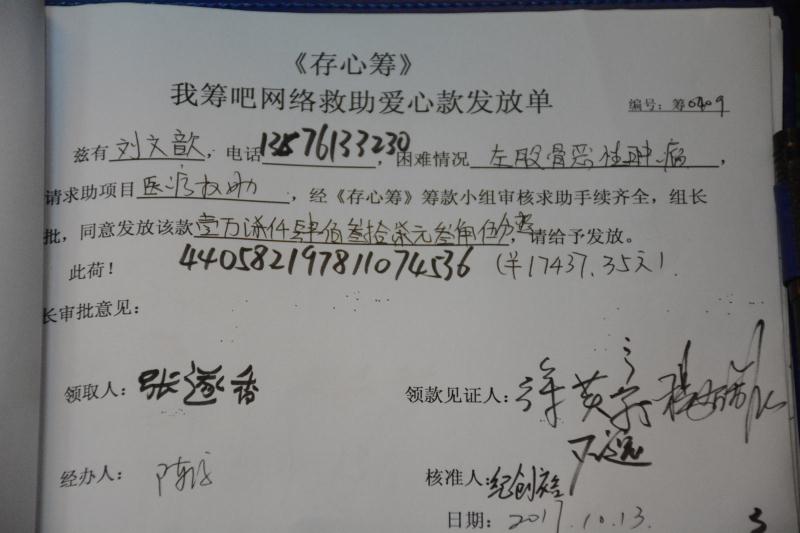 《存心筹》
我筹吧网络救助爱心款发放单
编号：筹0409
兹有刘文歆，电话13576133230，困难情况左股骨恶性肿瘤，
请求助项目医疗救助，经《存心筹》筹款小组审核求助手续齐全，组长
批，同意发放该款壹万柒仟肆佰叁拾柒元叁角伍分整，请给予发放。
此荷！ 440582197811074536 (¥17437.35元).
长审批意见：
领取人：张遂香 领款见证人：
经办人：陈 核准人：纪创裕
日期：2017.10.13.